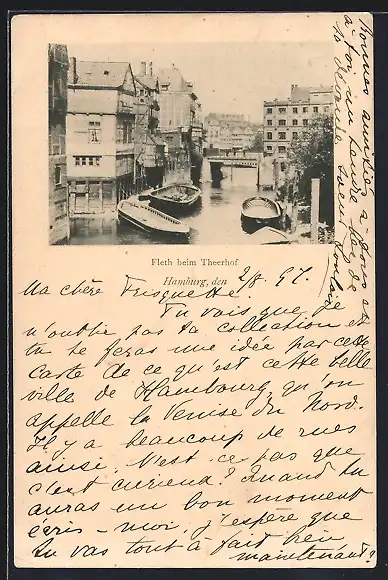 Fleth beim Theerhof
Hamburg, den 2/8. 97.
Ma chère Frisquette.
Tu vois que je
n'oublie pas ta collection et
tu te feras une idée par cette
carte de ce qu'est cette belle
ville de Hambourg, qu'on
appelle la Venise du Nord.
Il y a beaucoup de rues
ainsi. N'est ce pas que
c'est curieux? Quand tu
auras un bon moment
écris-moi, j'espère que
tu vas tout à fait bien
maintenant?
Bonnes amitiés à tous et
à toi un tendre baiser de
ta seconde soeur